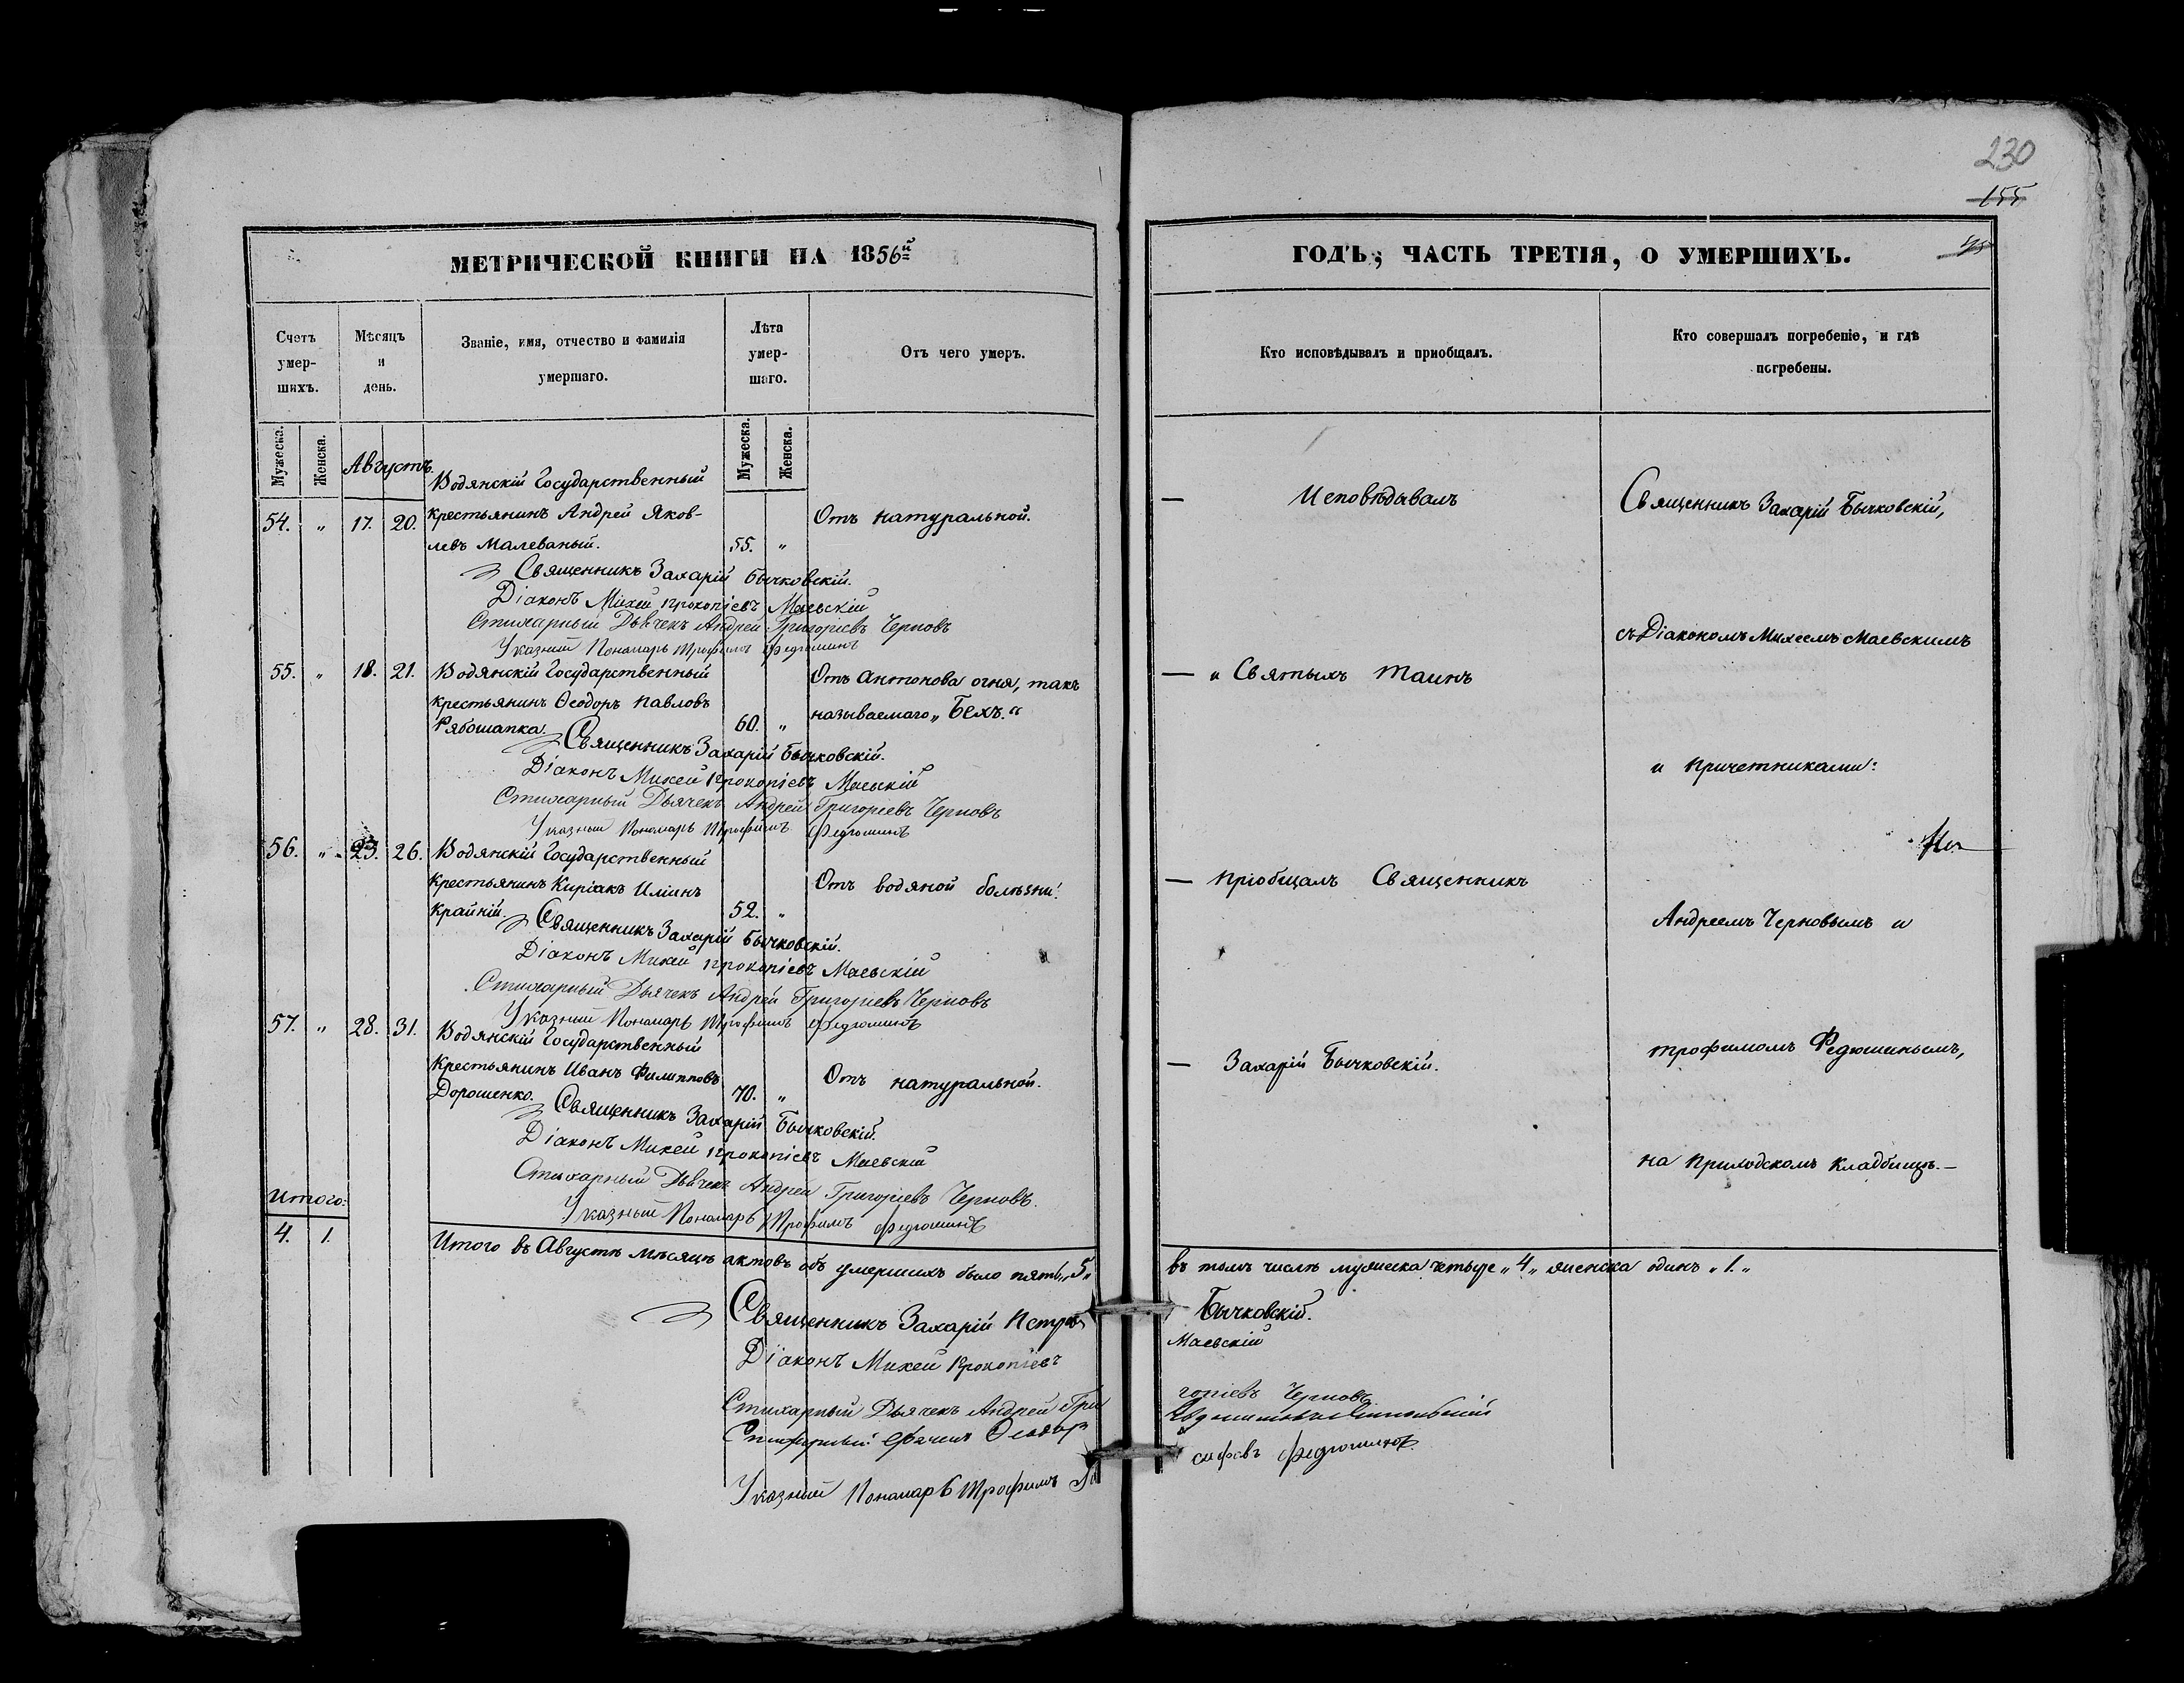 230
155
МЕТРИЧЕСКОЙ КНИГИ НА 1856й
ГОДЪ; ЧАСТЬ ТРЕТІЯ, О УМЕРШИХЪ.
Счетъ умер-шихъ.
Мѣсяцъ и день.
Званіе, имя, отчество и фамилія умершаго.
Лѣта умер-шаго.
Отъ чего умеръ.
Кто исповѣдывалъ и пріобщалъ.
Кто совершалъ погребеніе, и гдѣ погребены.
Мужеска. Женска. Августъ. Мужеска. Женска.
Водянскій Государственный
54. „ 17. 20. крестьянинъ Андрей Яков-
левъ Малеваный. 55. „
Отъ натуральной.
Священникъ Захарій Бычковскій.
Діаконъ Михей Прокопіевъ Маевскій
Стихарный Дьячекъ Андрей Григоріевъ Черновъ
Указный Пономарь Трофимъ Федюшинъ
55. „ 18. 21. Водянскій Государственный
крестьянинъ Ѳеодоръ Павловъ
Рябошапка. 60. „
Отъ Антонова огня, такъ
называемаго „Бехъ.“
Священникъ Захарій Бычковскій.
Діаконъ Михей Прокопіевъ Маевскій
Стихарный Дьячекъ Андрей Григоріевъ Черновъ
Указный Пономарь Трофимъ Федюшинъ
56. „ 23. 26. Водянскій Государственный
Крестьянинъ Киріакъ Иліинъ
Крайній. 52. „
Отъ водяной болѣзни.
Священникъ Захарій Бычковскій.
Діаконъ Михей Прокопіевъ Маевскій
Стихарный Дьячекъ Андрей Григоріевъ Черновъ
Указный Пономарь Трофимъ Федюшинъ
57. „ 28. 31. Водянскій Государственный
Крестьянинъ Иванъ Филипповъ
Дорошенко. 70. „
Отъ натуральной.
Священникъ Захарій Бычковскій.
Діаконъ Михей Прокопіевъ Маевскій
Стихарный Дьячекъ Андрей Григоріевъ Черновъ.
Указный Пономарь Трофимъ Федюшинъ
Итого:
4. 1.
— Исповѣдывалъ
— и Святыхъ Таинъ
— пріобщалъ Священникъ
— Захарій Бычковскій.
Священникъ Захарій Бычковскій,
съ Діакономъ Михеемъ Маевскимъ
и причетниками:
Андреемъ Черновымъ и
Трофимомъ Федюшинымъ,
на приходскомъ кладбищѣ.—
Итого въ Августѣ мѣсяцѣ актовъ объ умершихъ было пять „5„ въ томъ числѣ мужеска четыре „4„ женска одинъ „1.„
Священникъ Захарій Петровъ Бычковскій.
Діаконъ Михей Прокопіевъ Маевскій
Стихарный Дьячекъ Андрей Григоріевъ Черновъ
Стихарный Дьячекъ Ѳеодоръ
Указный Пономарь Трофимъ сифовъ Федюшинъ.